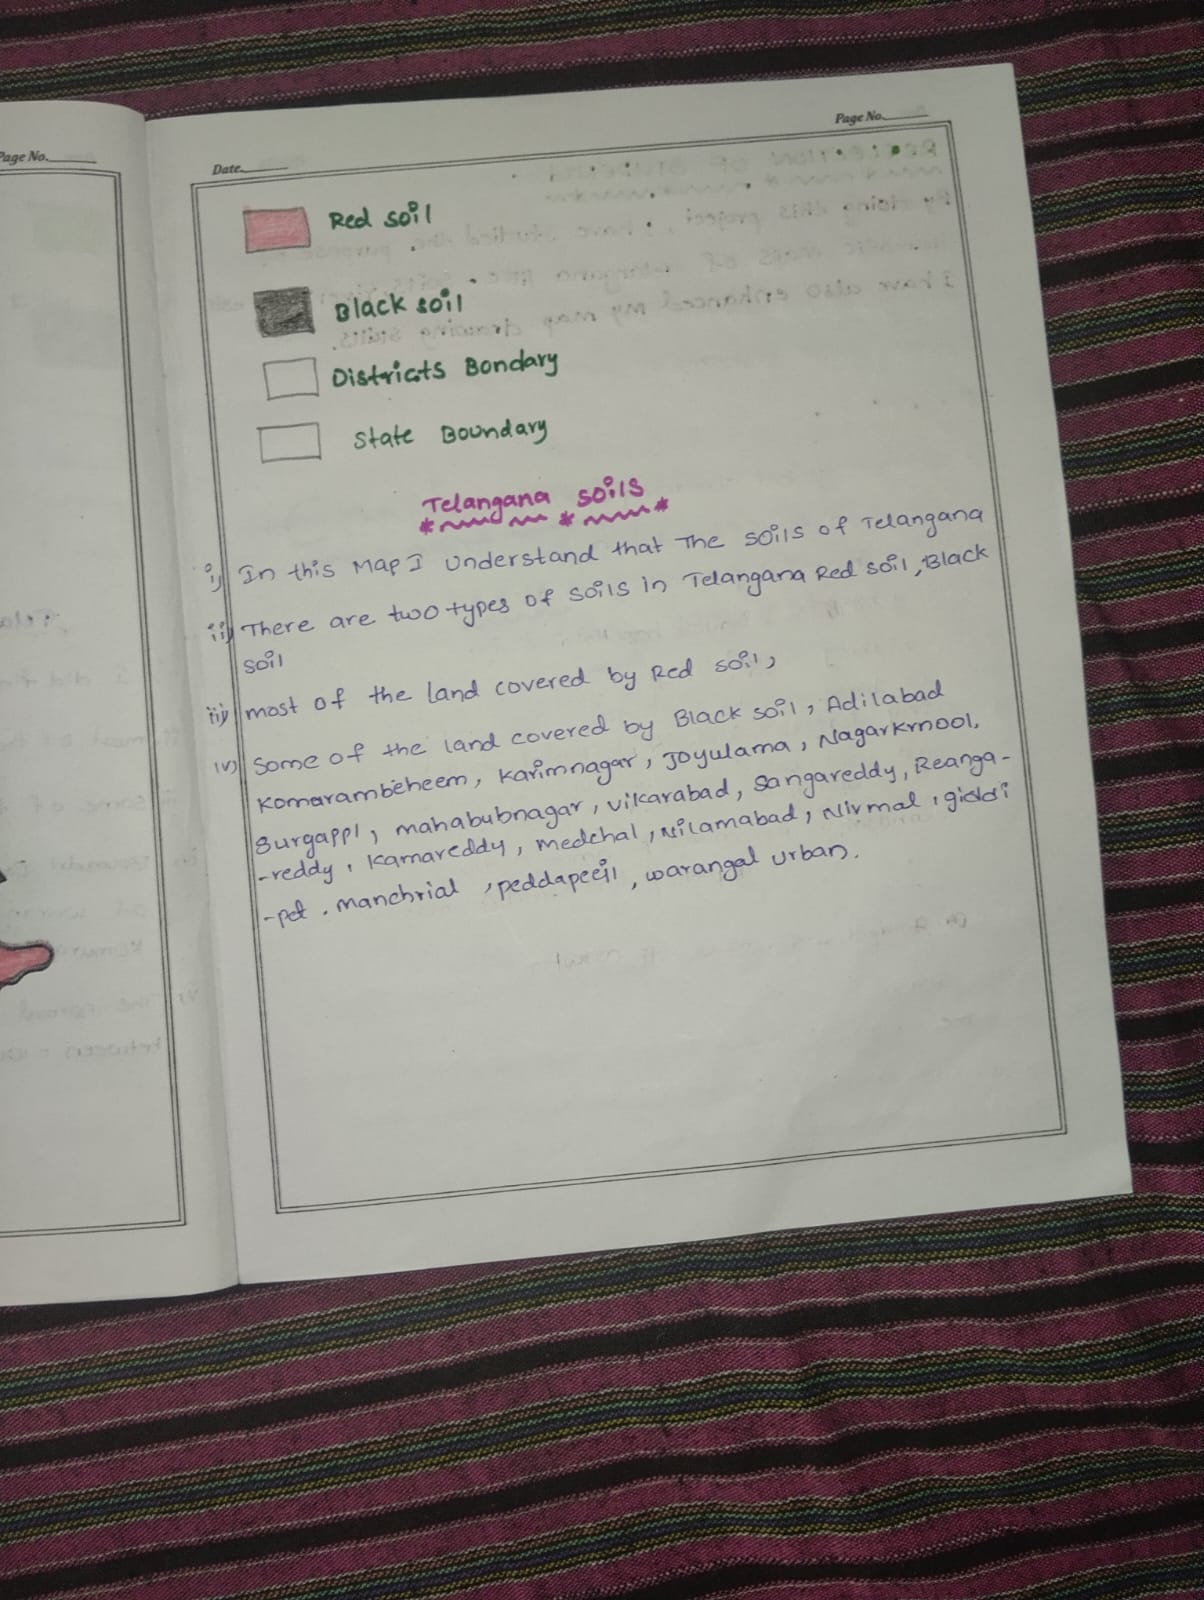 Page No.
Date
Page No.
Red soil
Black soil
Districts Bondary
State Boundary
Telangana soils
i) In this Map I understand that The soils of Telangana
ii) There are two types of soils in Telangana Red soil, Black
soil
iii) most of the land covered by Red soil,
iv) Some of the land covered by Black soil, Adilabad
Komarambheem, Karimnagar, Joyulama, Nagarkrnool,
Surgappl, mahabubnagar, vikarabad, Sangareddy, Reanga-
-reddy, Kamareddy, medchal, Nilamabad, Nirmal,
-pet. manchrial, warangal urban.